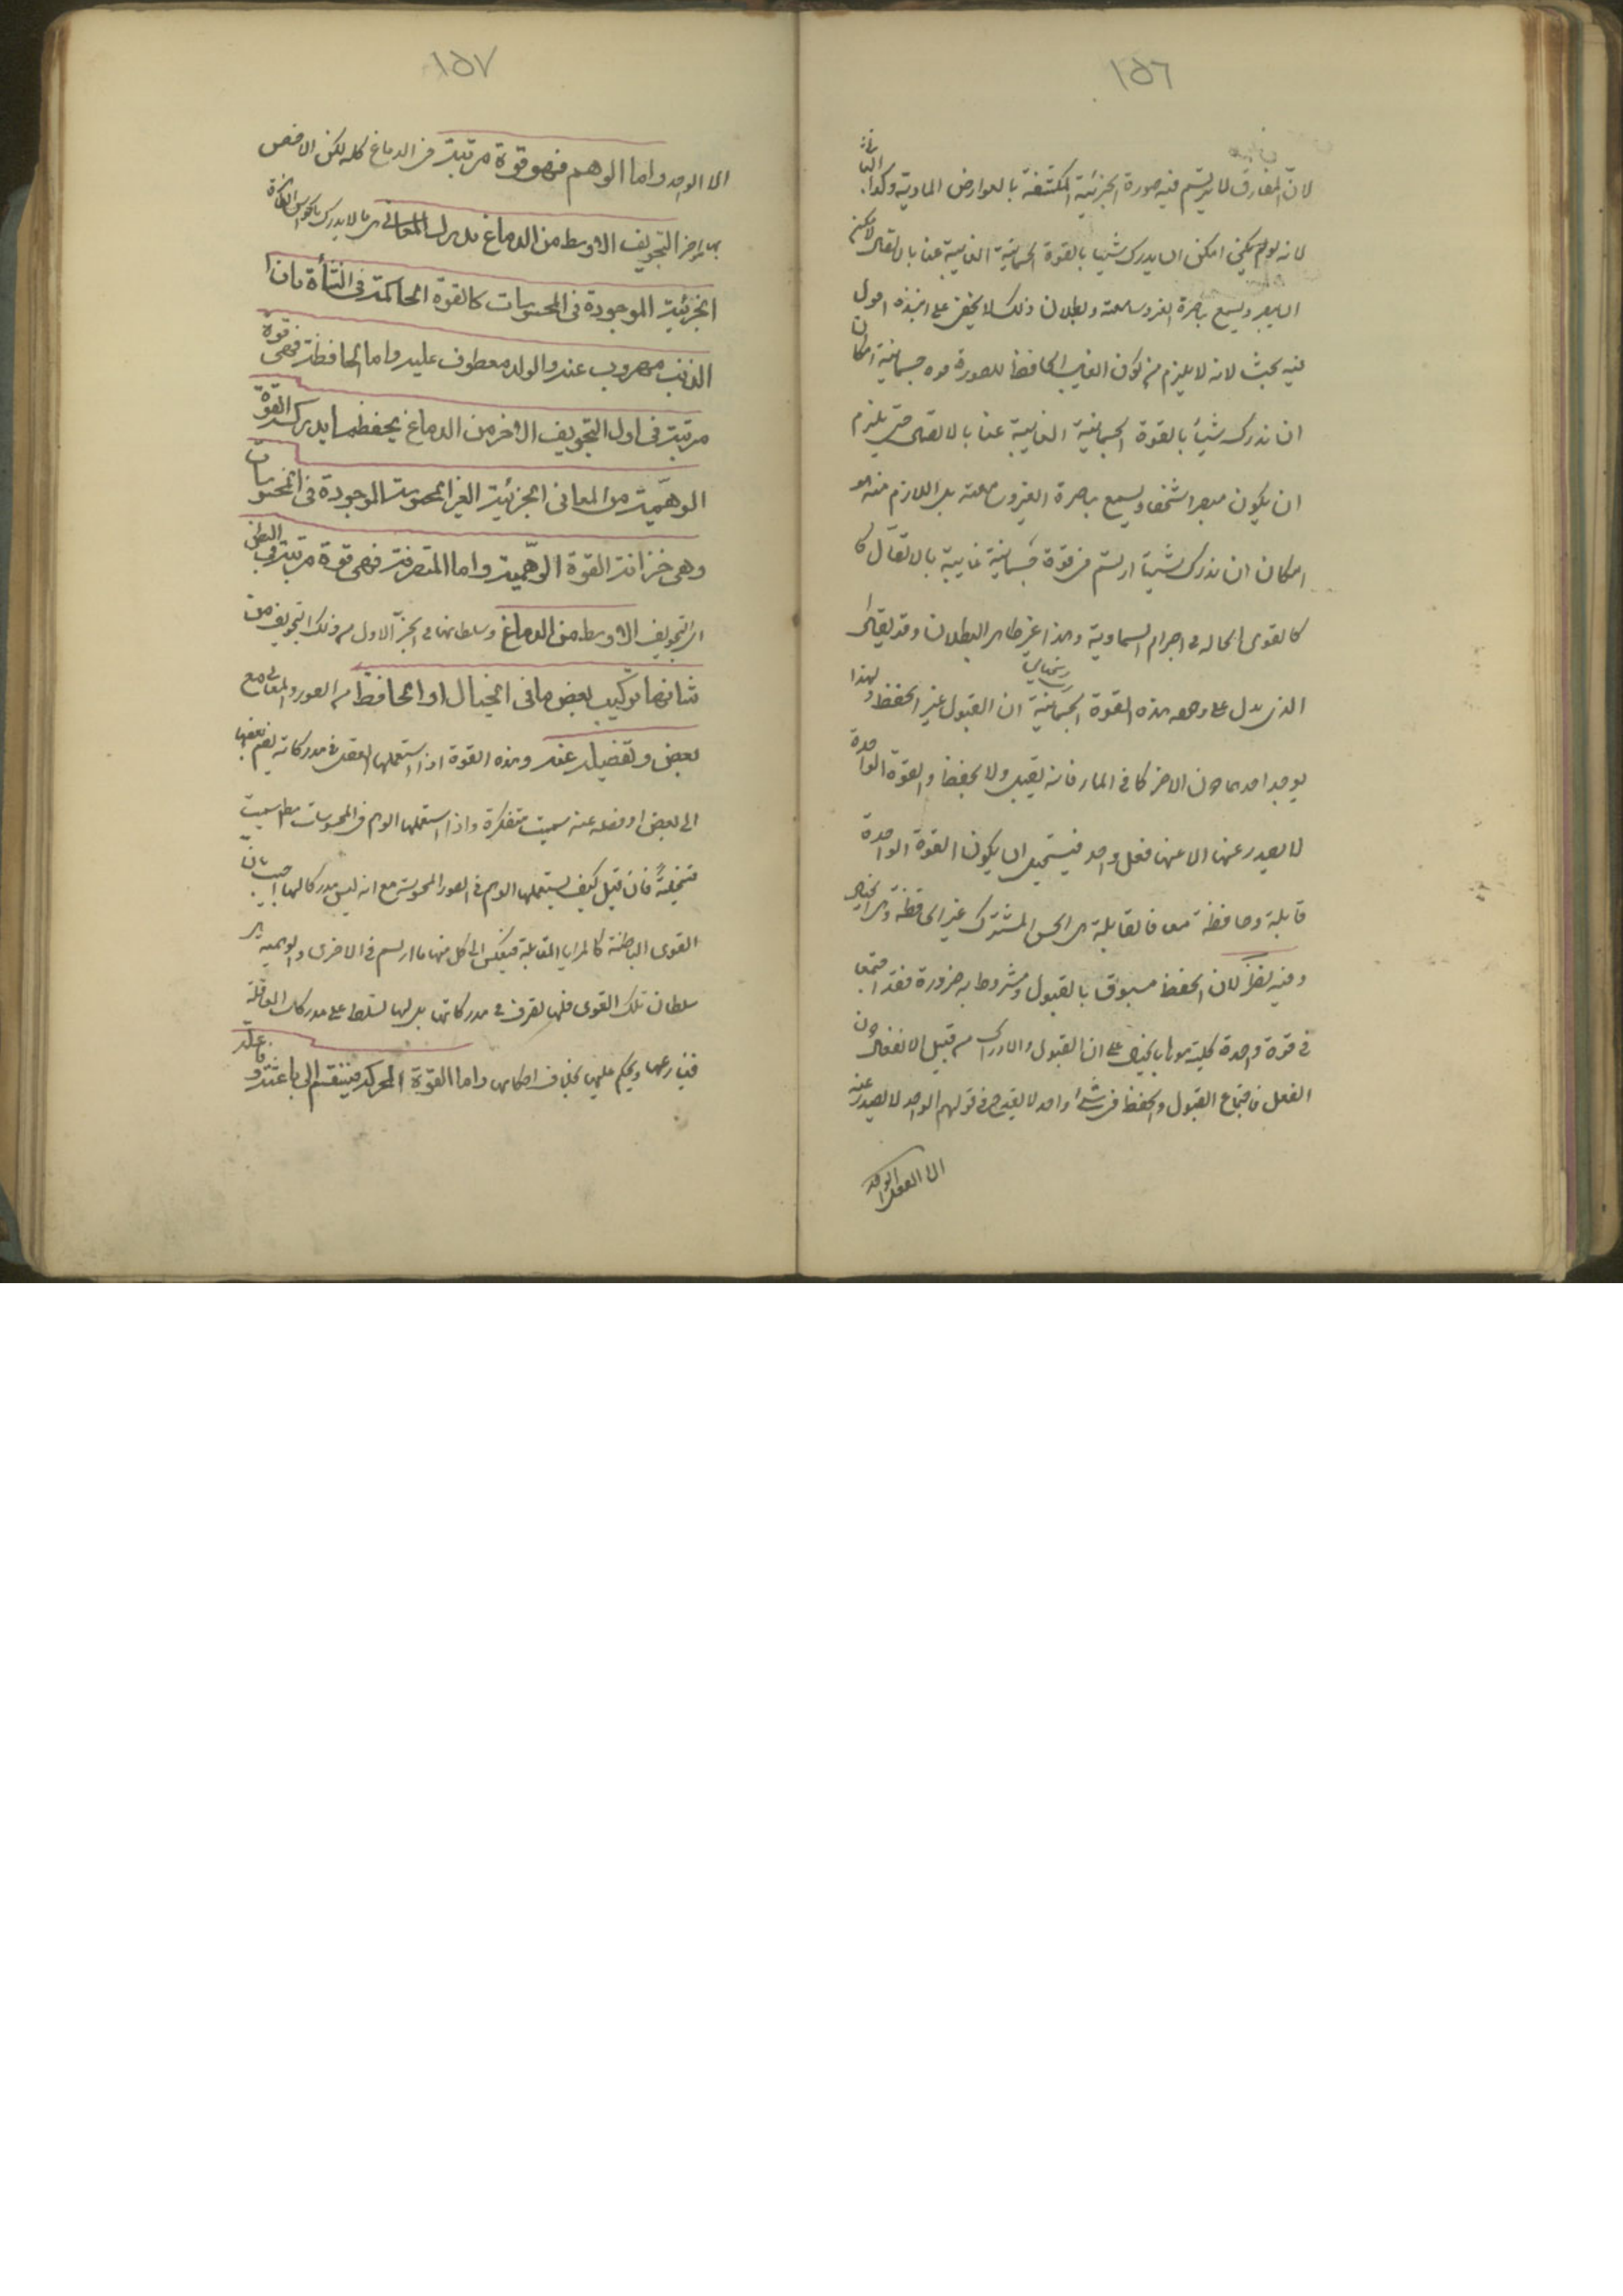 ١٥٦
لان المفارق لا يرتسم فيه صورة الجزئية المكتنفة بالعوارض المادية وكذا الثانى
لانه لو لم يكن امكن ان يدرك شيئا بالقوة الجسمانية الغايبة عنا بالاتصال لامكن
ان يبصر ويسمع باصرة الغير وسامعته وبطلان ذلك لا يخفى على اقول
فيه بحث لانه لا يلزم من كون الغايب الحافظ للصورة قوة جسمانية امكان
ان ندرك شيئا بالقوة الجسمانية الغايبة عنا بالاتصال حتى يلزم
ان يكون مبصرا شخصا ويسمع باصرة الغير وسامعته بل اللازم منه هو
امكان ان ندرك شيئا ارتسم فى قوة جسمانية غايبة بالاتصال كا
كالقوى الحالة فى اجرام السماوية وهذا غير ظاهر البطلان وقد يقال
الذى يدل على هذه القوة الجسمانية ان القبول غير الحفظ ولهذا
يوجد احدهما دون الاخر كما فى الماء فانه يقبل ولا يحفظ والقوة الواحدة
لا يصدر عنها الا فعل واحد فيستحيل ان يكون القوة الواحدة
قابلة وحافظة معا فالقابلة هى الحس المشترك غير الحافظة وهى الخيال
وفيه نظر لان الحفظ مسبوق بالقبول ومشروط به ضرورة فقد اجتمعا
فى قوة واحدة سميتموها بالخيال على ان القبول والادراك من قبيل الانفعال دون
الفعل فاجتماع القبول والحفظ فى شئ واحد لا يقدح فى قولهم الواحد لا يصدر عنه
الا الفعل الواحد
١٥٧
الا الواحد واما الوهم فهو قوة مرتبة فى الدماغ كله لكن الاخص
بها اخر التجويف الاوسط من الدماغ يدرك المعانى هى ما لا يدرك بالحواس الظاهرة
الجزئية الموجودة فى المحسوسات كالقوة الحاكمة فى الشأة بان
الذئب مهروب عنه والولد معطوف عليه واما الحافظة فهى قوة
مرتبة فى اول التجويف الاخر من الدماغ يحفظ ما يدركه القوة
الوهمية من المعانى الجزئية الغير المحسوسة الموجودة فى المحسوسات
وهى خزانة القوة الوهمية واما المتصرفة فهى قوة مرتبة فى البطن
اى التجويف الاوسط من الدماغ وسلطانها فى الجزء الاول من ذلك التجويف من
شانها تركيب بعض ما فى الخيال او الحافظة من الصور والمعانى مع
بعض وتفصيله عنه وهذه القوة اذا استعملها العقل فى مدركاته بضم بعضها
الى بعض او فصله عنه سميت متفكرة واذا استعملها الوهم فى المحسوسات مطلقا سميت
متخيلة فان قيل كيف يستعملها الوهم فى الصور المحسوسة مع انه ليس مدركا لها اجيب بان
القوى الباطنة كالمرايا المتقابلة فينعكس الى كل منها ما ارتسم فى الاخرى والوهمية هى
سلطان تلك القوى فلها تصرف فى مدركاتها بل لها تسلط على مدركات العاقلة
فينازعها ويحكم عليها بخلاف احكامها واما القوة المحركة فينقسم الى باعثة وفاعلة